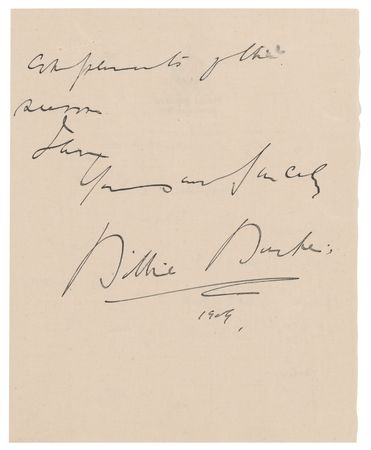 compliments of the
season
I am
Yours very Sincerely
Billie Burke.
1909.